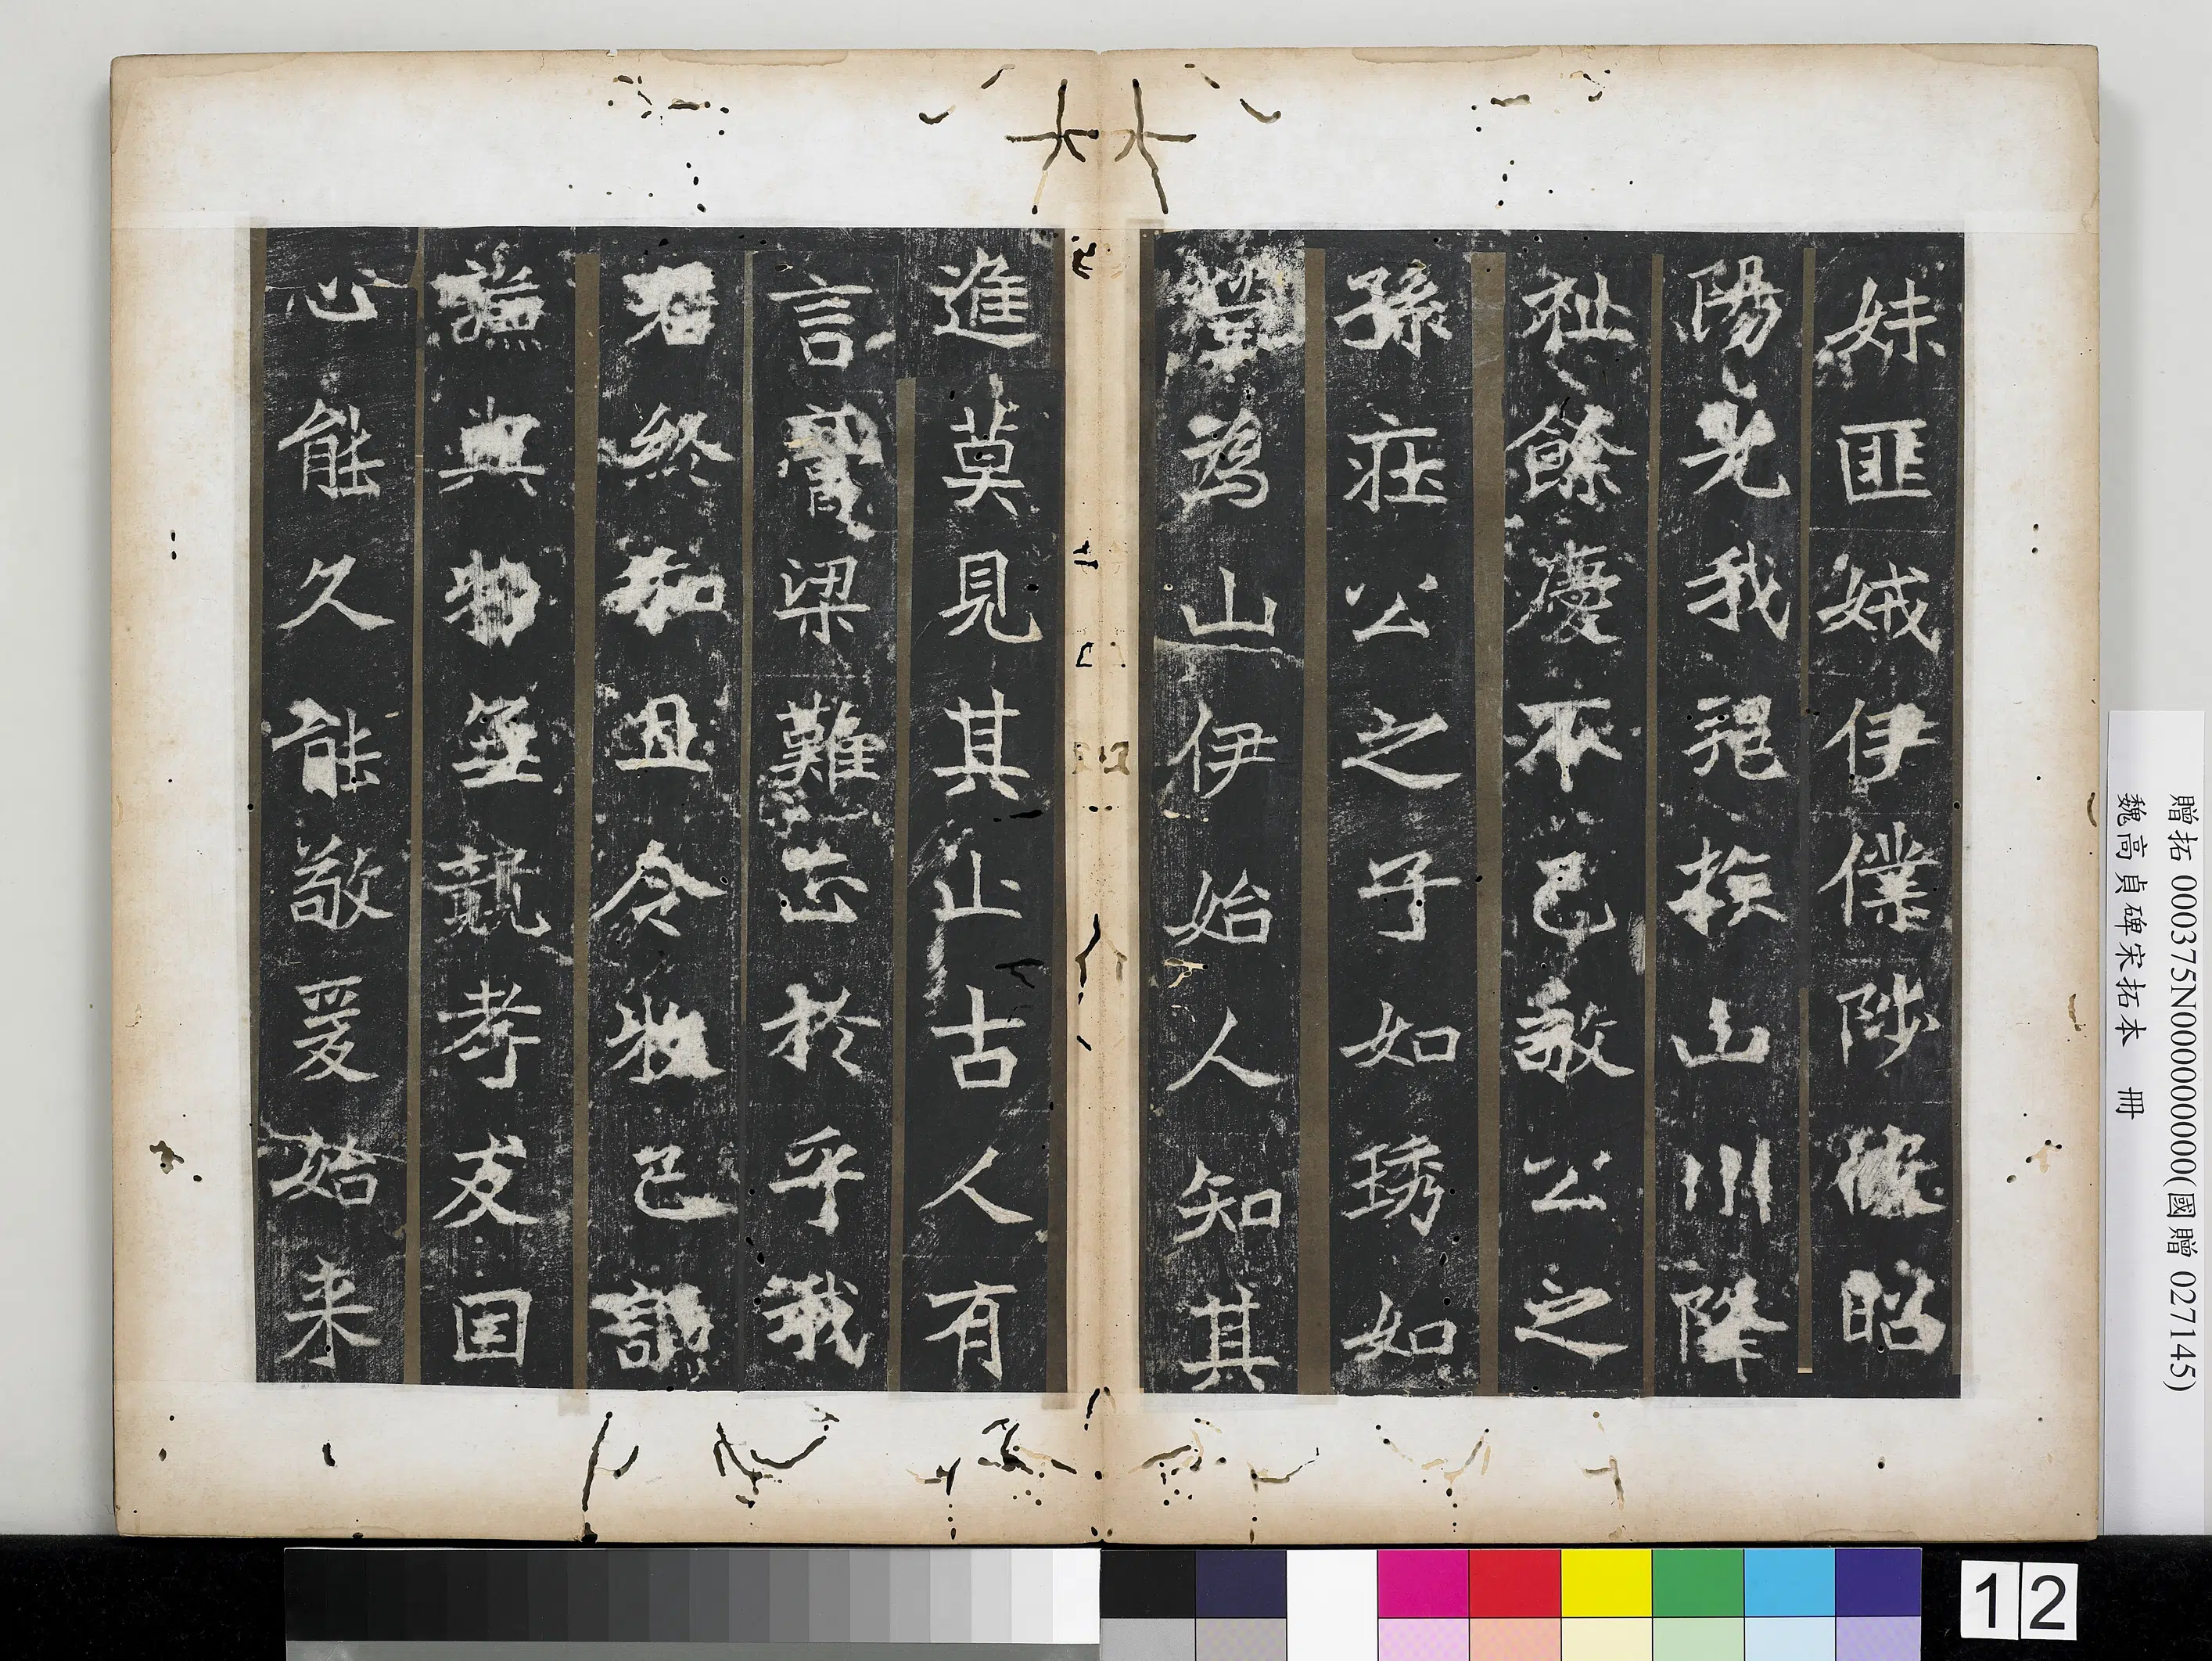 妹匪娥伊僕陟彼昭
陽光我邦族山川降
祉餘慶不已敬公之
孫莊公之子如琇如
瑩為山伊始人知其
進莫見其止古人有
言膏粱難正於乎我
君終和且令牧己
謙與物無競孝友因
心能久能敬爰始来
贈拓 000375N000000000(國贈 027145)
魏高貞碑宋拓本 冊
12